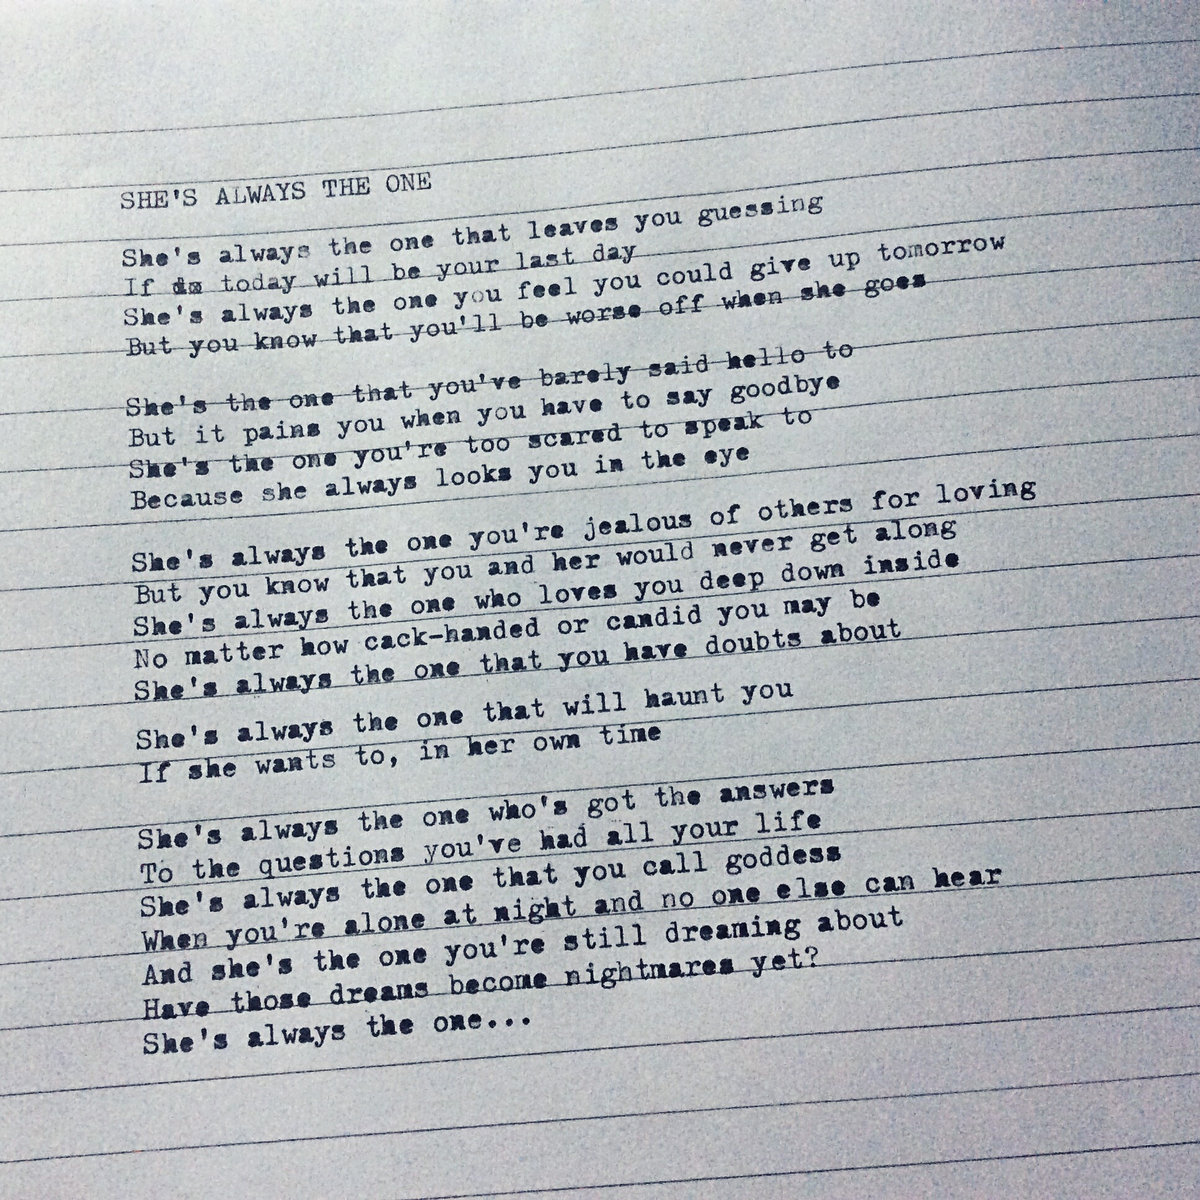 SHE'S ALWAYS THE ONE
She's always the one that leaves you guessing
If today will be your last day
She's always the one you feel you could give up tomorrow
But you know that you'll be worse off when she goes
She's the one that you've barely said hello to
But it pains you when you have to say goodbye
She's the one you're too scared to speak to
Because she always looks you in the eye
She's always the one you're jealous of others for loving
But you know that you and her would never get along
She's always the one who loves you deep down inside
No matter how cack-handed or candid you may be
She's always the one that you have doubts about
She's always the one that will haunt you
If she wants to, in her own time
She's always the one who's got the answers
To the questions you've had all your life
She's always the one that you call goddess
When you're alone at night and no one else can hear
And she's the one you're still dreaming about
Have those dreams become nightmares yet?
She's always the one...